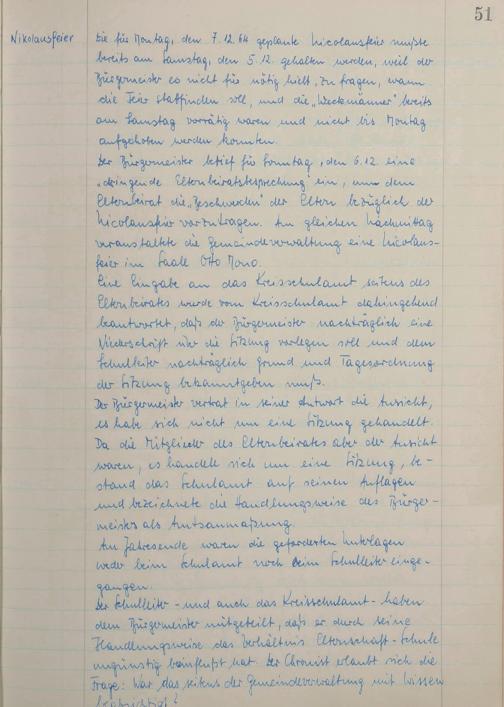 51
Nikolausfeier
Die für Montag, den 7.12.64 geplante Nicolausfeier mußte
bereits am Samstag, den 5.12. gehalten werden, weil der
Bürgermeister es nicht für nötig hielt, zu fragen, wann
die Feier stattfinden soll, und die „Weckmänner" bereits
am Samstag vorrätig waren und nicht bis Montag
aufgehoben werden konnten.
Der Bürgermeister berief für Sonntag, den 6.12. eine
„dringende Elternbeiratsbesprechung" ein, um dem
Elternbeirat die „Beschwerden" der Eltern bezüglich der
Nicolausfeier vorzutragen. Am gleichen Nachmittag
veranstaltete die Gemeindeverwaltung eine Nicolaus-
feier im Saale Otto Mono.
Eine Eingabe an das Kreisschulamt seitens des
Elternbeirates wurde vom Kreisschulamt dahingehend
beantwortet, daß der Bürgermeister nachträglich eine
Niederschrift über die Sitzung vorlegen soll und dem
Schulleiter nachträglich Grund und Tagesordnung
der Sitzung bekanntgeben muß.
Der Bürgermeister vertrat in seiner Antwort die Ansicht,
es habe sich nicht um eine Sitzung gehandelt.
Da die Mitglieder des Elternbeirates aber der Ansicht
waren, es handele sich um eine Sitzung, be-
stand das Schulamt auf seinen Auflagen
und bezeichnete die Handlungsweise des Bürger-
meisters als Amtsanmaßung.
Am Jahresende waren die geforderten Unterlagen
weder beim Schulamt noch beim Schulleiter einge-
gangen.
Der Schulleiter - und auch das Kreisschulamt - haben
dem Bürgermeister mitgeteilt, daß er durch seine
Handlungsweise das Verhältnis Elternschaft - Schule
ungünstig beinflußt hat. Der Chronist erlaubt sich die
Frage: War das seitens der Gemeindeverwaltung mit Wissen
beabsichtigt?